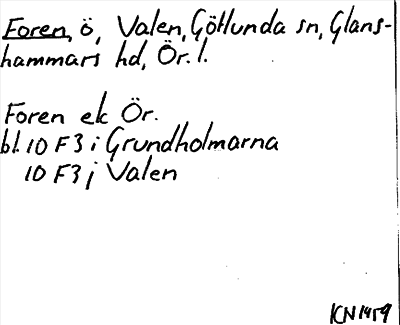 Foren, ö, Valen, Götlunda sn, Glans-
hammars hd, Ör. l.
Foren ek Ör.
bl. 10 F 3 i Grundholmarna
10 F 3 j Valen
KN 1959